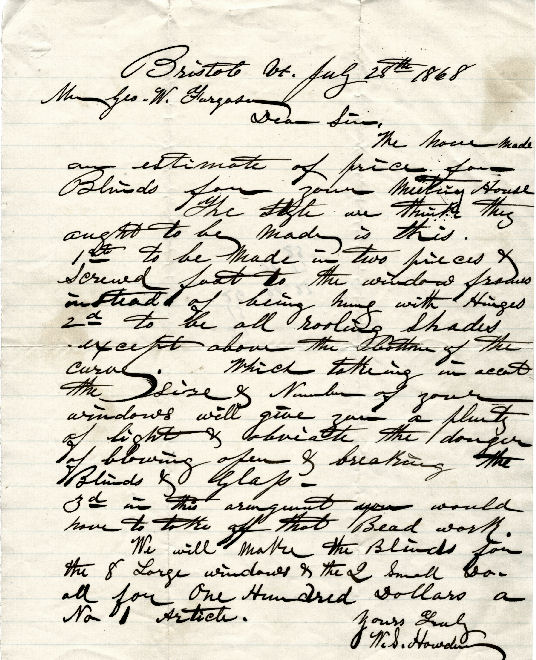 Bristol Vt. July 28th 1868
Mr Geo. W. Furguson
Dear Sir,
We have made
an estimate of price for
Blinds for your Meeting House
The style we think they
ought to be made is this.
1st to be made in two pieces &
Screwed fast to the window frames
instead of being hung with Hinges
2d to be all rooling Shades
except above the Bottom of the
curve. Which taking in acct
the Size & Number of your
windows will give you a plenty
of light & obviate the danger
of blowing open & breaking the
Blinds & Glass -
3d in this arangment you would
have to take off that Bead work.
We will make the Blinds for
the 8 Large windows & the 2 Small Do-
all for One Hundred Dollars a
No 1 Article.
Yours Truly
W.S. Howden